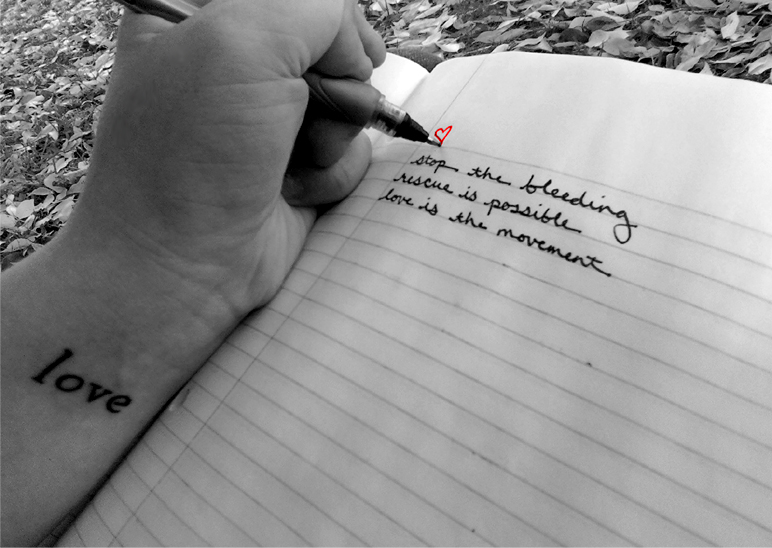 stop the bleeding
rescue is possible
love is the movement
love